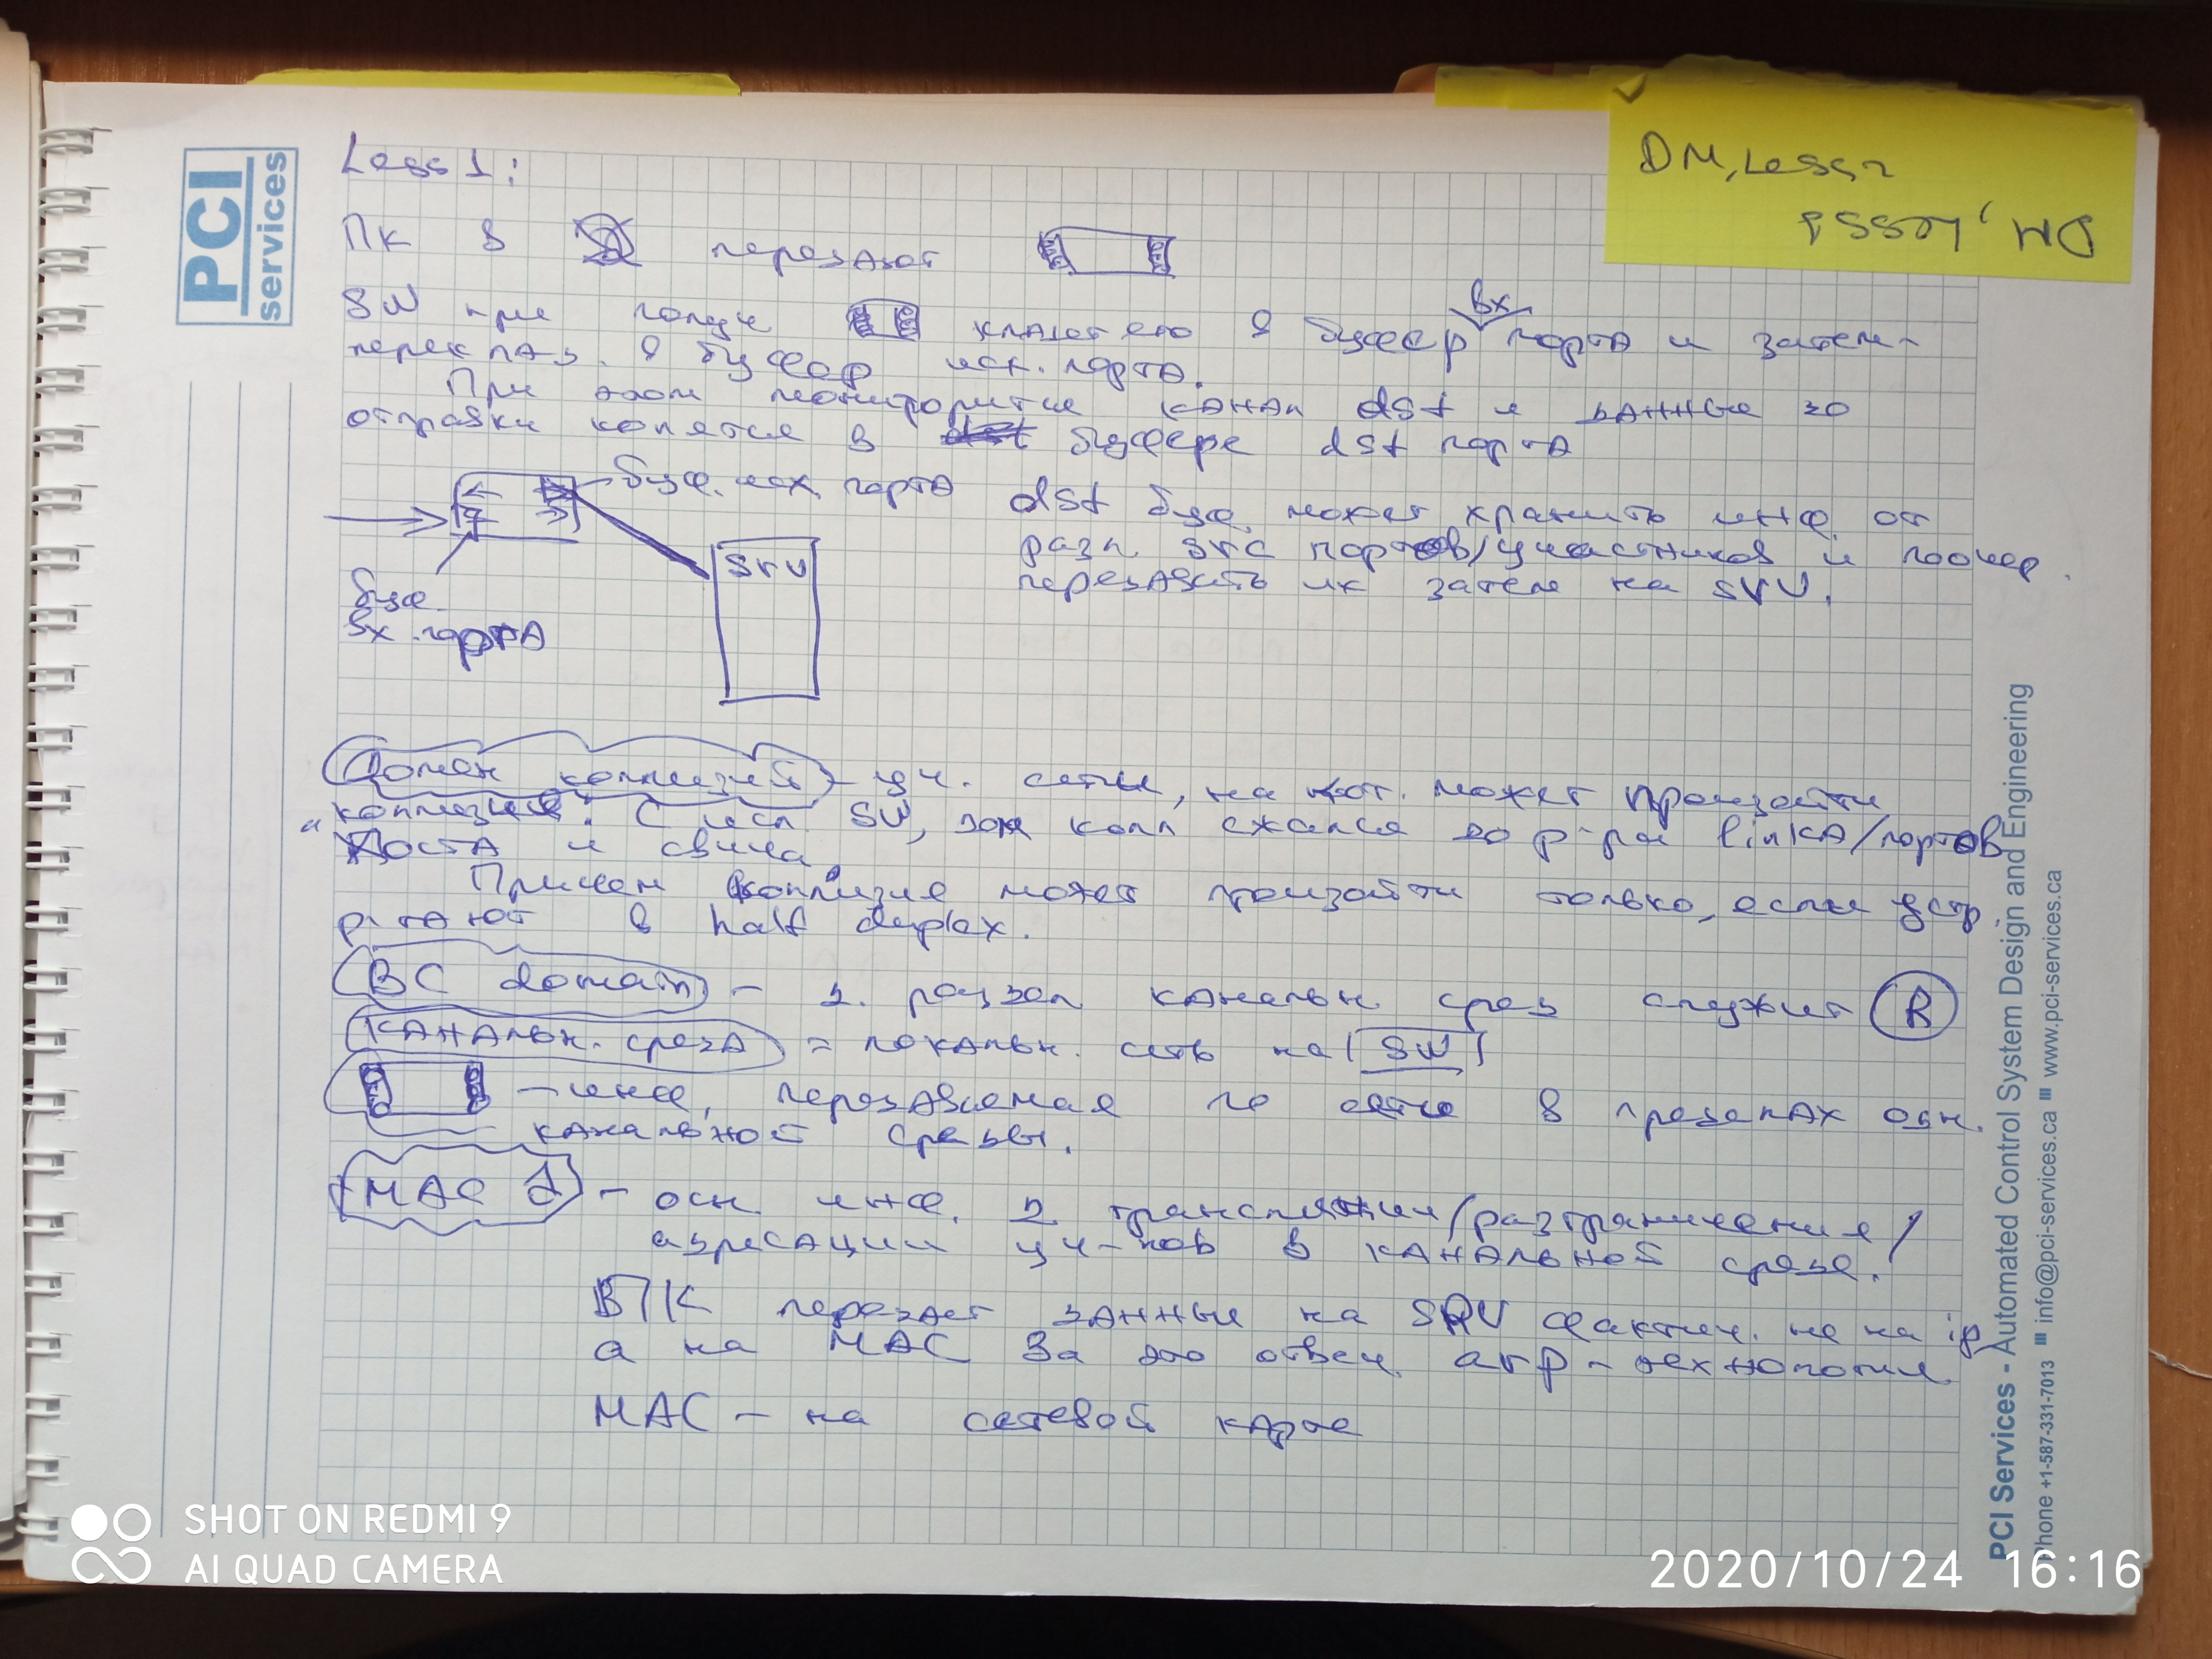 PCI
services
DM, Less,2
DM, Less1
Less 1:
ПК в передают
SW при получ кладет его в буфер вх порта и затем -
переклад. в буфер исх. порта.
При этом мониторится канал dst и данные до
отправки копятся в буфере dst порта
буф. исх. порта
буф.
вх. порта
srv
dst буф. может хранить инф. от
разл. src портов/участников и поочер.
передавать их затем на srv.
Домен коллизий - уч. сети, на кот. может произойти
коллизия. С исп. SW, дом колл сжался до р-ра linkа/портов
"хоста и свича".
Причем коллизия может произойти только, если устр
р-тают в half duplex.
BC domain - д. раздел канальн. сред служит R
Канальн. среда = локальн. сеть на SW
- инф., передаваемая по сети в пределах одн.
канальной среды.
MAC a - осн. инф. д. трансляции/разграничения/
адресации уч-ков в канальной среде.
ПК передает данные на SRV фактич. не на ip
а на MAC За это отвеч. arp - технология.
MAC - на сетевой карте
PCI Services - Automated Control System Design and Engineering
Phone +1-587-331-7013 ■ info@pci-services.ca ■ www.pci-services.ca
SHOT ON REDMI 9
AI QUAD CAMERA
2020/10/24 16:16